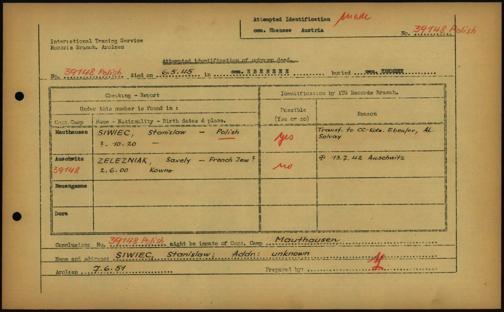 Attempted Identification made
cem. Ebensee Austria
No. 39148 Polish
International Tracing Service
Records Branch, Arolsen
Attempted identification of unknown dead.
No. 39148 Polish died on 6.5.45 in cem. EBENSEE buried cem. EBENSEE
Checking - Report
Identification by ITS Records Branch.
Under this number is found in :
Possible
(You or no)
Reason
Conc. Camp
Name - Nationality - Birth dates & place.
Mauthausen
SIWIEC, Stanislaw - Polish
?. 10. 20 -
yes
Transf. to CC-Kdo. Ebensee, AL
Solvay
Auschwitz
59148
ZELEZNIAK, Savely - French Jew?
2. 6. 00 Kowno
no
✠ 13. 7. 42 Auschwitz
Neuengamme
Dora
Conclusions: No. 39148 Polish might be inmate of Conc. Camp Mauthausen
Name and address: SIWIEC, Stanislaw; Addr: unknown
Arolsen 7.6.51 Prepared by: